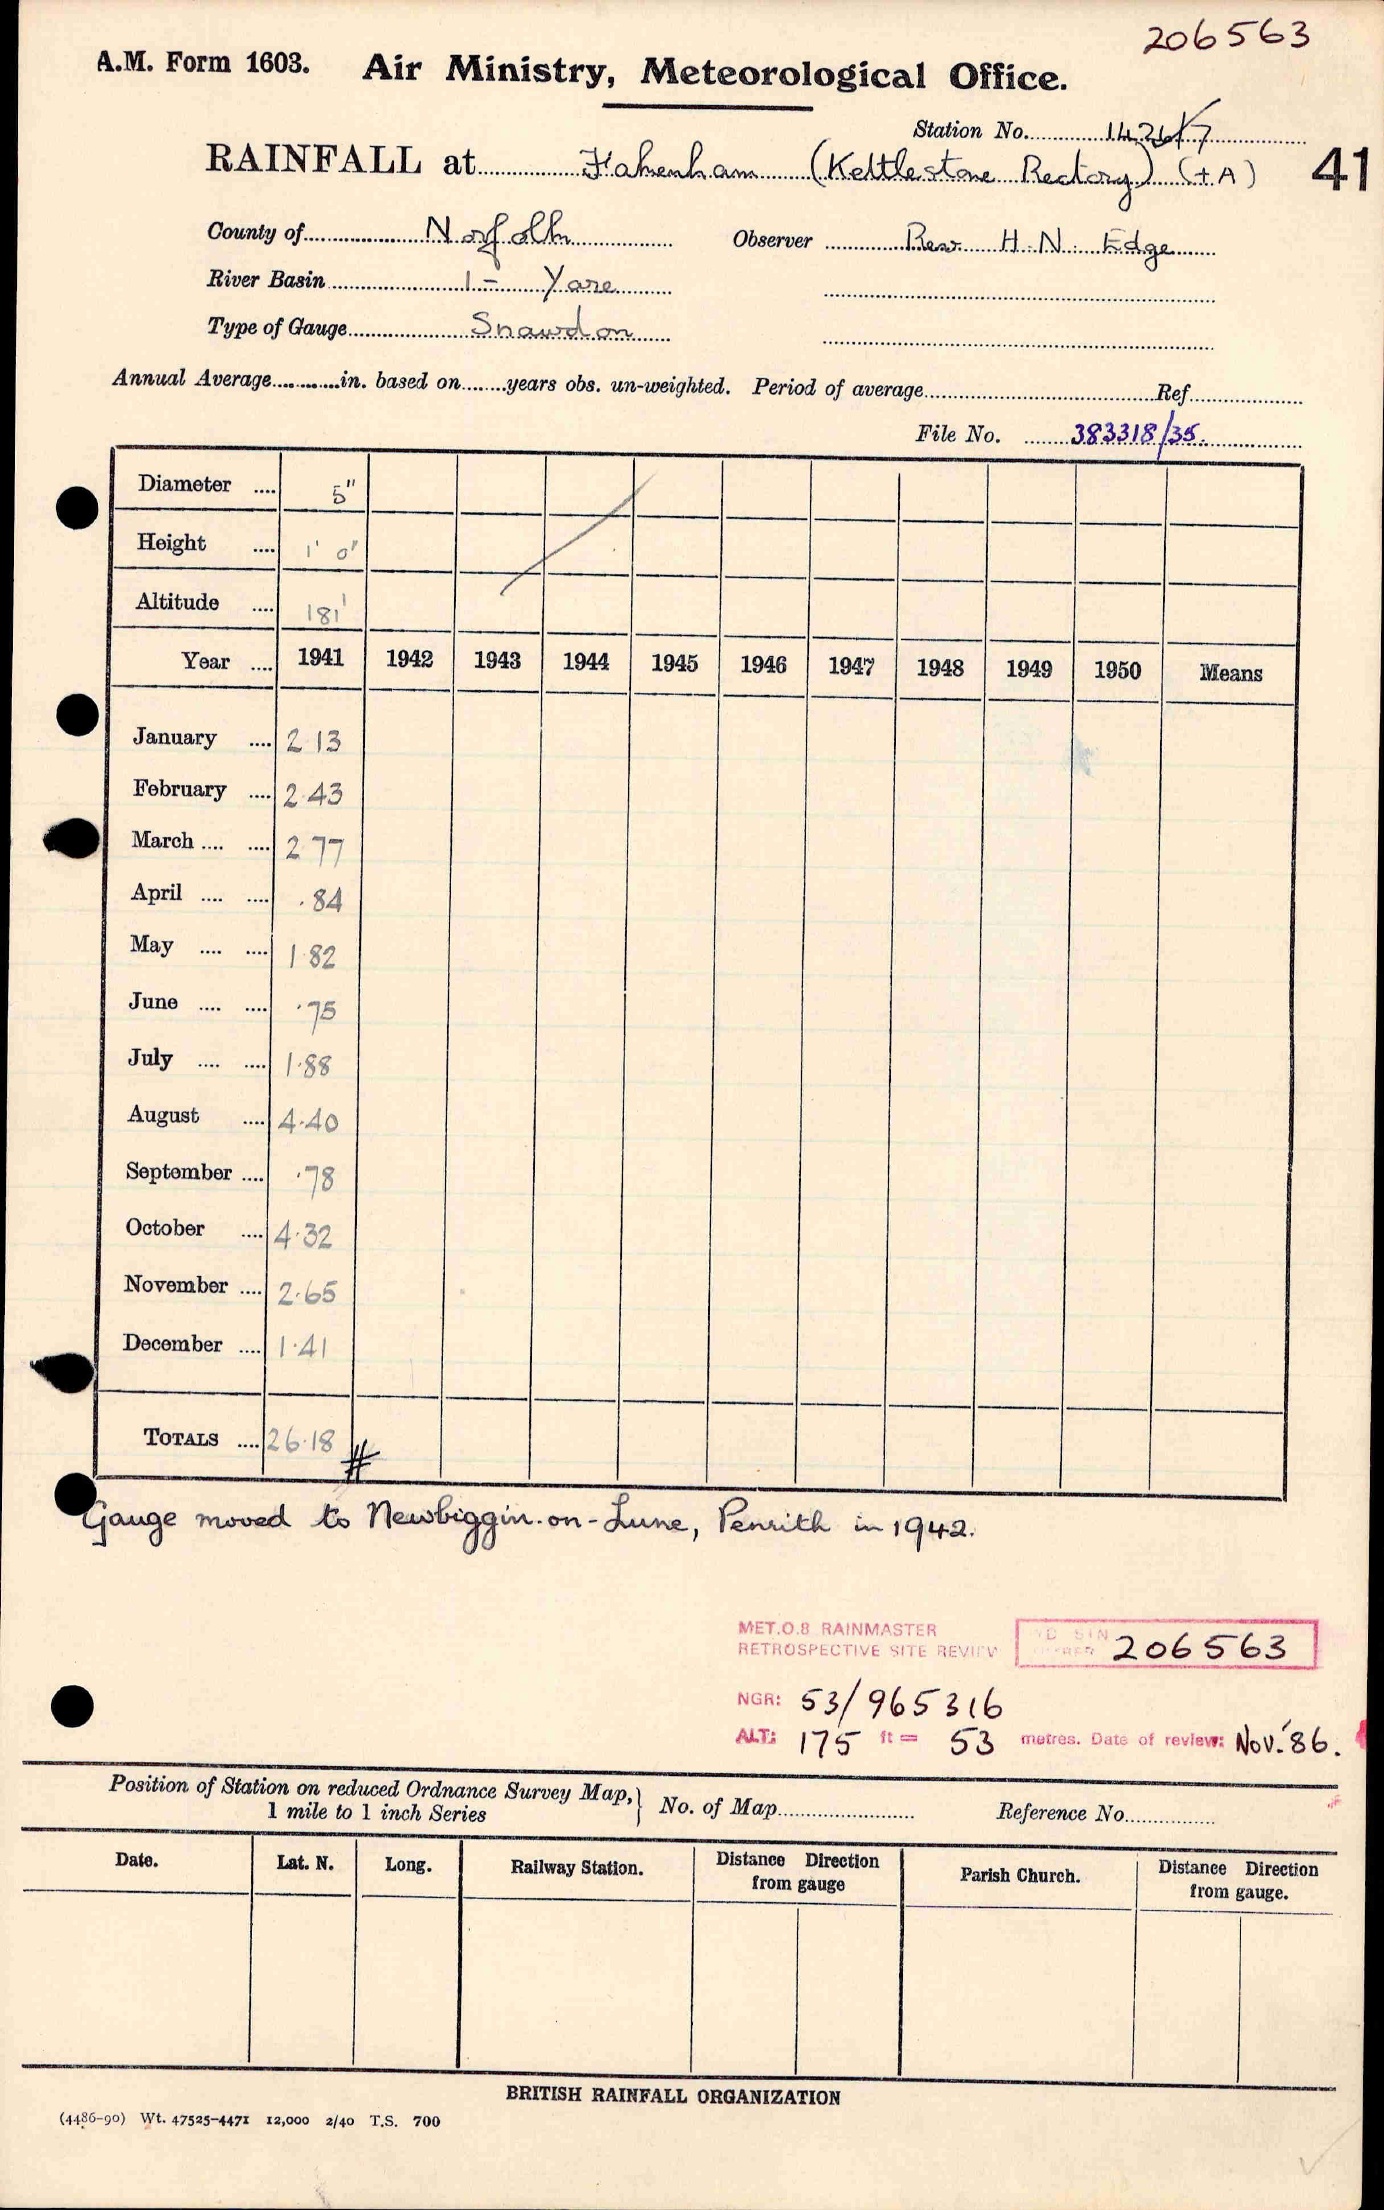 206563
A.M. Form 1603. Air Ministry, Meteorological Office.
Station No. 1426/7
RAINFALL at Fakenham (Kettlestone Rectory) (+A) 41
County of Norfolk Observer Rev. H. N. Edge
River Basin 1 - Yare
Type of Gauge Snowdon
Annual Average in. based on years obs. un-weighted. Period of average Ref
File No. 383318/35.
Diameter .... 5"
Height .... 1' 0"
Altitude .... 181'
Year .... 1941 1942 1943 1944 1945 1946 1947 1948 1949 1950 Means
January .... 2.13
February .... 2.43
March .... .... 2.77
April .... .... .84
May .... .... 1.82
June .... .... .75
July .... .... 1.88
August .... 4.40
September .... .78
October .... 4.32
November .... 2.65
December .... 1.41
TOTALS .... 26.18 #
Gauge moved to Newbiggin-on-Lune, Penrith in 1942.
MET.O.8 RAINMASTER
RETROSPECTIVE SITE REVIEW 206563
NGR: 53/965316
ALT: 175 ft = 53 metres. Date of review: Nov. '86.
Position of Station on reduced Ordnance Survey Map, } No. of Map Reference No.
1 mile to 1 inch Series
Date. Lat. N. Long. Railway Station. Distance Direction from gauge Parish Church. Distance Direction from gauge.
BRITISH RAINFALL ORGANIZATION
(4486-90) Wt. 47525-4471 12,000 2/40 T.S. 700